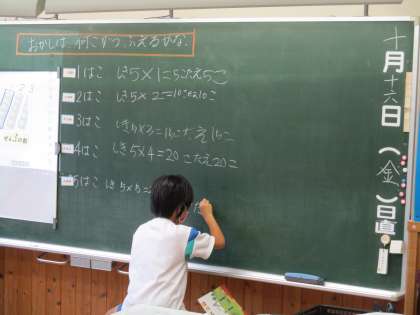 おかしは、何こずつふえるかな。
1はこ しき5×1=5こたえ5こ
2はこ しき5×2=10こたえ10こ
3はこ しき5×3=15こたえ15こ
4はこ しき5×4=20こたえ20こ
5はこ しき5×5=
十月十六日(金)日直